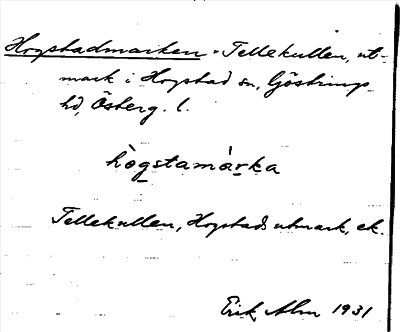 Hogstadmarken = Tellekullen, ut-
mark i Hogstad sn, Göstrings
hd, Österg. l.
hògstamàrka
Tellekullen, Hogstads utmark, ek.
Erik Alm 1931